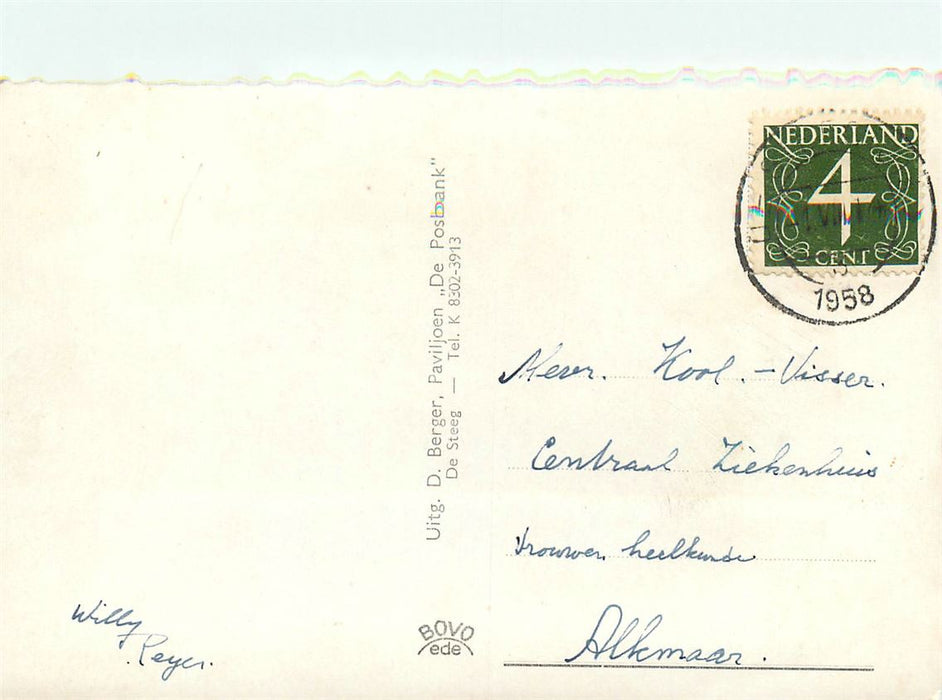 NEDERLAND
4
CENT
1958
Uitg. D. Berger, Paviljoen „De Posbank"
De Steeg — Tel. K 8302-3913
Mevr. Kool.-Visser.
Centraal Ziekenhuis
Vrouwen heelkunde
Alkmaar.
Willy
BOVO
ede